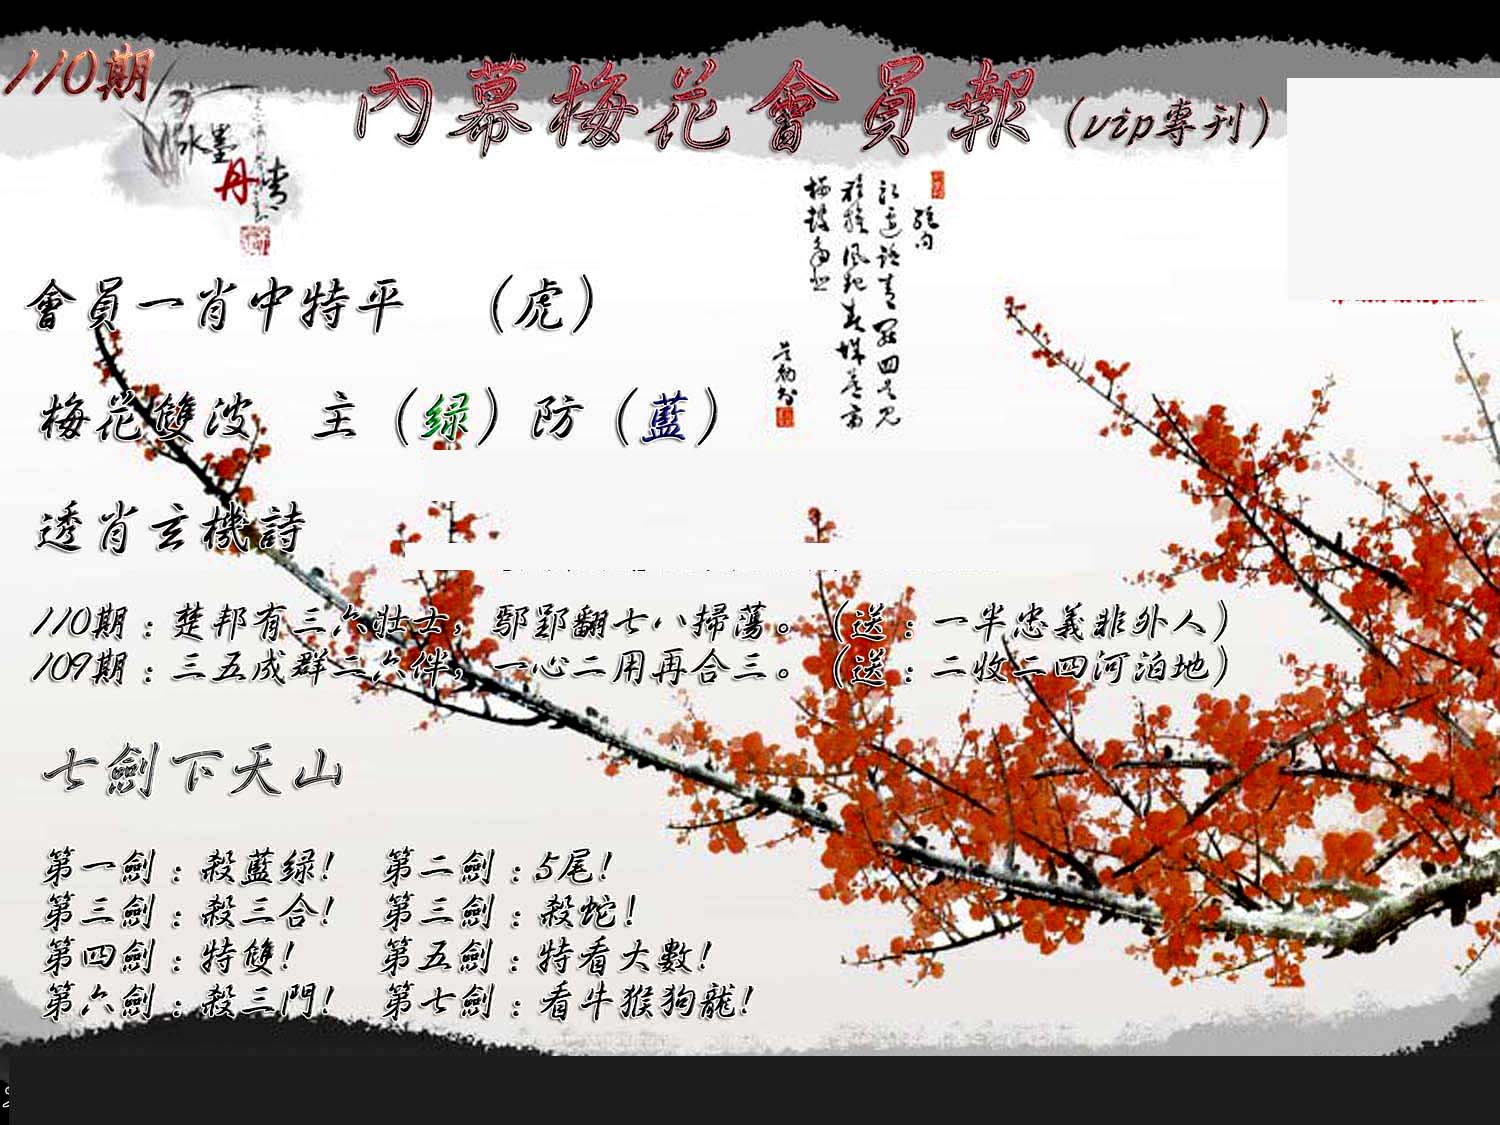 110期
內幕梅花會員報（vip專刊）
水墨
丹青
會員一肖中特平　（虎）
梅花雙波　主（绿）防（藍）
透肖玄機詩
110期：楚邦有三六壯士，鄢郢翻七八掃蕩。（送：一半忠義非外人）
109期：三五成群二六伴，一心二用再合三。（送：二收二四河泊地）
七劍下天山
第一劍：殺藍绿！　第二劍：5尾！
第三劍：殺三合！　第三劍：殺蛇！
第四劍：特雙！　第五劍：特看大數！
第六劍：殺三門！　第七劍：看牛猴狗龍！